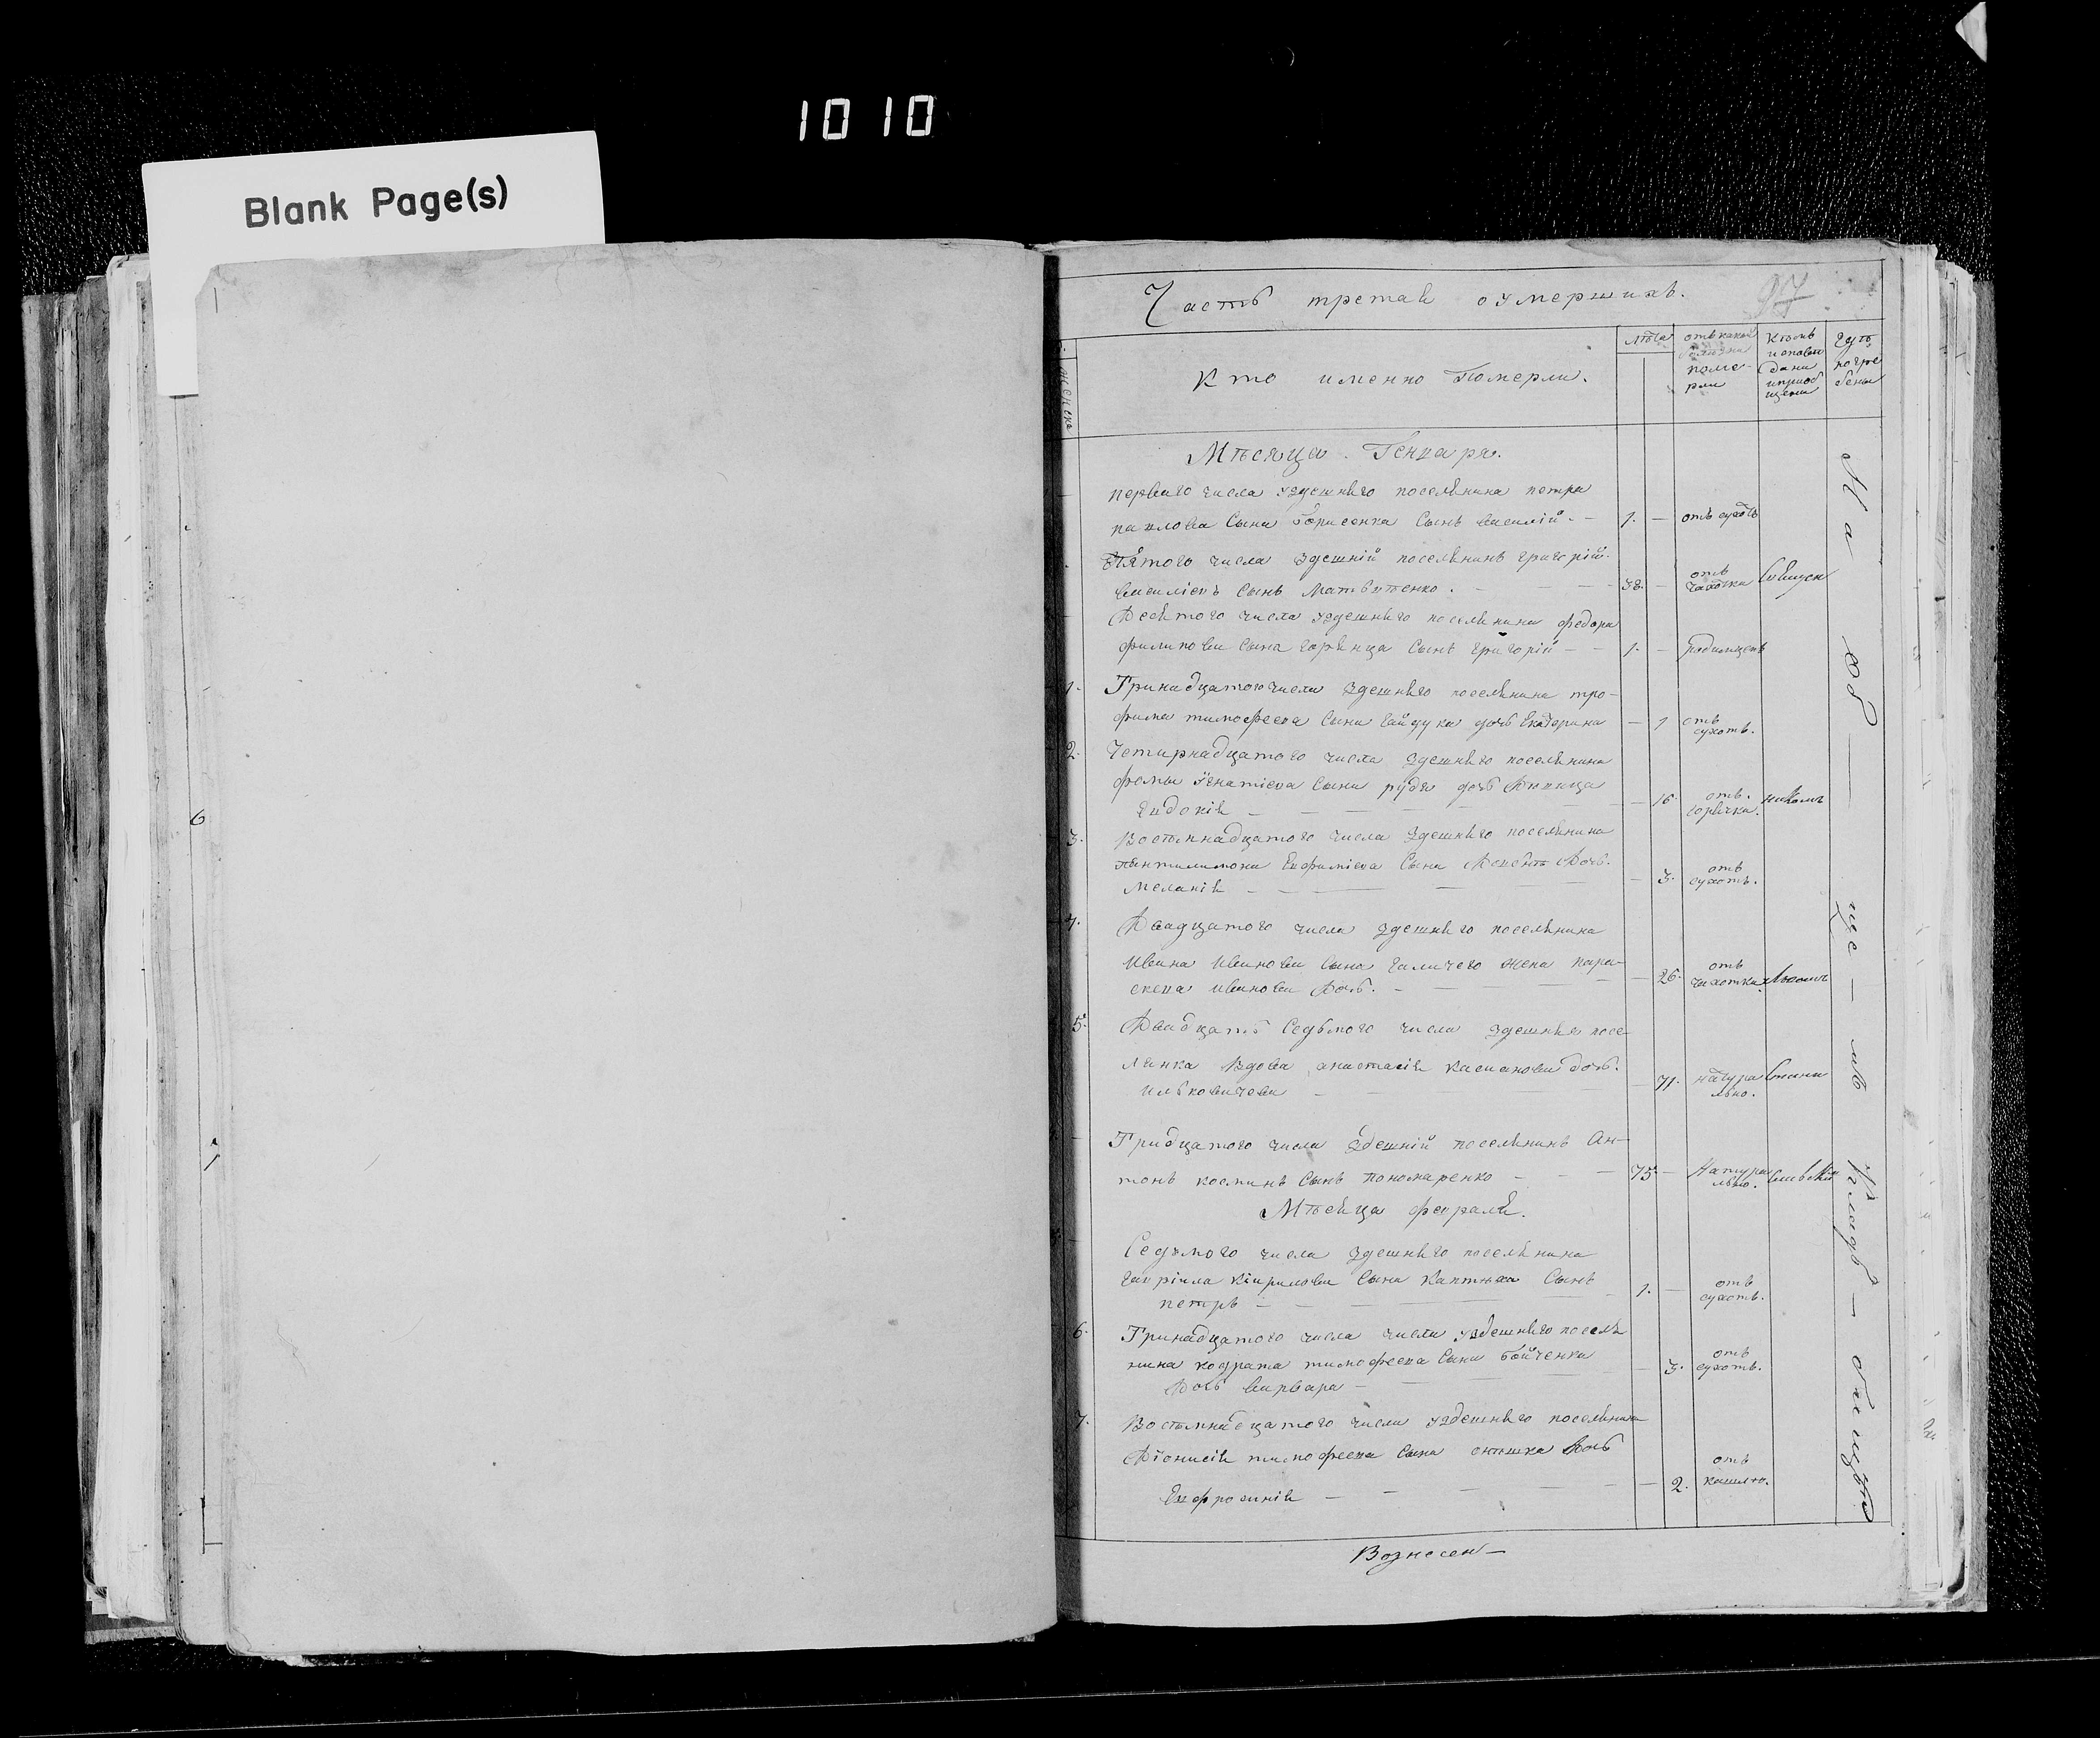 10 10
Blank Page(s)
6
1
97
Часть третая оумершихъ.
женска
Кто именно Померли.
лѣта
отъ какой
поме-
рли
Кѣмъ
исповѣ
даны
и приоб
щены
Гдѣ
погре
бены
Мѣсяца Генваря.
перваго числа здешняго поселянина петра
павлова Сына Борисенка Сынъ василій. — 1. — отъ сухотъ
Пятого числа Здешній поселянинъ григорій
василіевъ Сынъ Матвѣенко. — 38. — отъ чахотки
Десятого числа здешняго поселянина федора
филипова Сына горянца Сынъ григорій — 1. — родимцевъ
1. Тринадцатого числа Здешняго поселянина тро-
фима тимофеева Сына гайдука дочь Екатерина — 1 отъ сухотъ.
2. Четырнадцатого числа Здешняго поселянина
фомы Игнатіева Сына руды дочь дѣвица
Евдокія — 16. отъ горячки.
3. Восемнадцатого числа Здешняго поселянина
пантилимона Евфиміева Сына Дочь.
Меланія — 3. отъ сухотъ.
4. Двадцатого числа здешняго поселянина
Ивана Иванова Сына галичего жена пара-
скева иванова Дочь. — 26. отъ чахотки
5. Двадцать Седьмого числа здешняя посе-
лянка Вдова анастасія касианова дочь.
ильковичева — 71. натура льно.
Тридцатого числа Здешній поселянинъ Ан-
тонъ косминъ Сынъ пономаренко — 75 — Натура льно.
Мѣсяца февраля.
Седьмого числа здешняго поселянина
гавріила кирилова Сына Каптюха Сынъ
петръ — 1. — отъ сухотъ.
6. Тринадцатого числа числа здешняго поселя
нина кодрата тимофеева Сына бойченка
Дочь варвара — 3. отъ сухотъ.
7. Восемнадцатого числа здешняго поселянина
Діонисія тимофеева Сына Дочь
Евфросинія — 2. отъ кашлю.
На об — ще — мъ кладб — бищѣ
Вознесен—